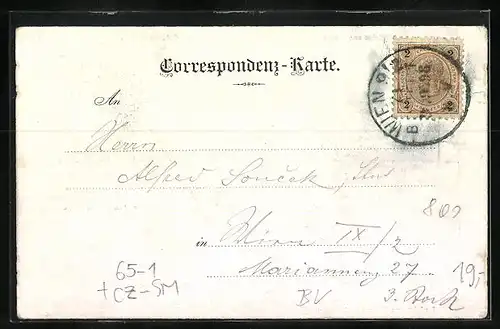 Correspondenz-Karte.
2 2
2 2
WIEN 9/
An
Herrn
Alfred Souček, Stud
800
in Wien IX/2
Mariannen 27
19,-
65-1
+CZ-SM
BV
3. Stock